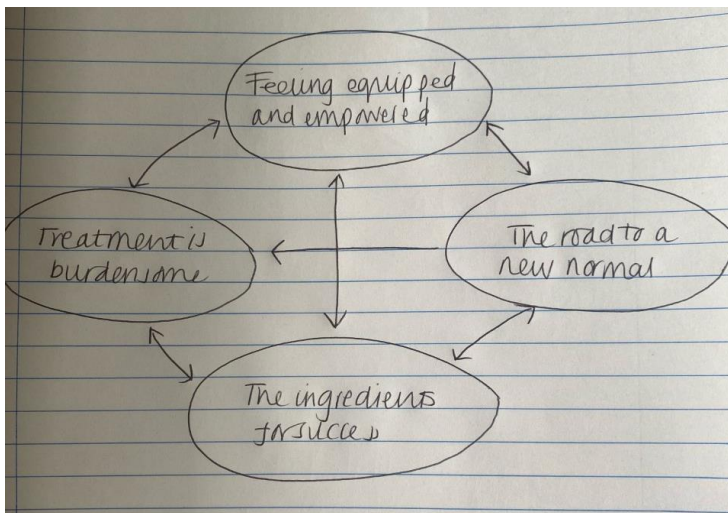 Feeling equipped
and empowered
Treatment is
burdensome
The road to a
new normal
The ingredients
for success